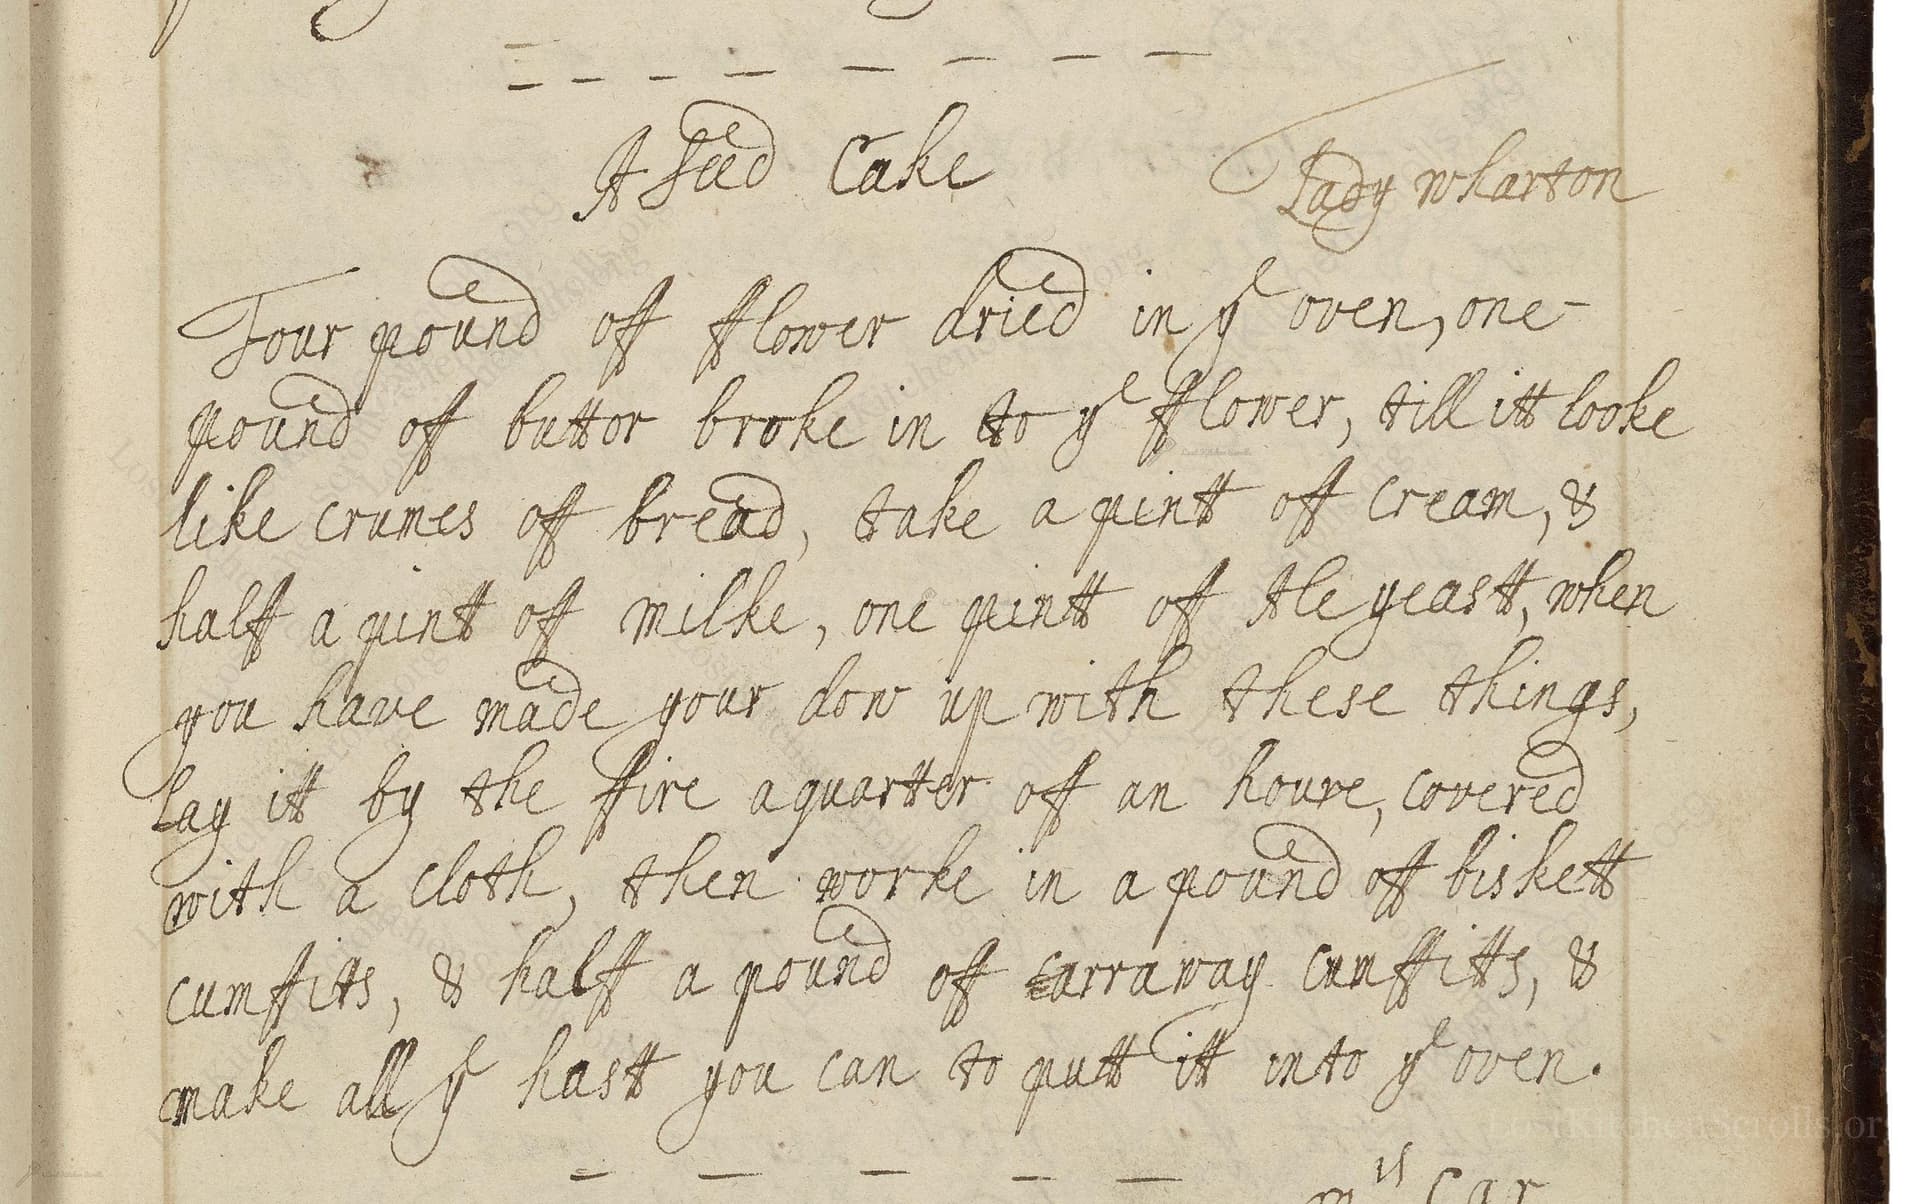 A seed Cake
Lady wharton
Four pound off fflower dried in ye oven, one
pound off buttor broke in to ye fflower, till itt looke
like crumes off bread, take a pintt off cream, &
halff a pintt off milke, one pintt off Ale yeastt, when
you have made your dow up with these things,
Lay itt by the ffire a quartter off an houre, covered
with a cloth, then worke in a pound off biskett
cumffitts, & halff a pound off carraway cumffitts, &
make all ye hastt you can to putt itt into ye oven.
LostKitchenScrolls.or